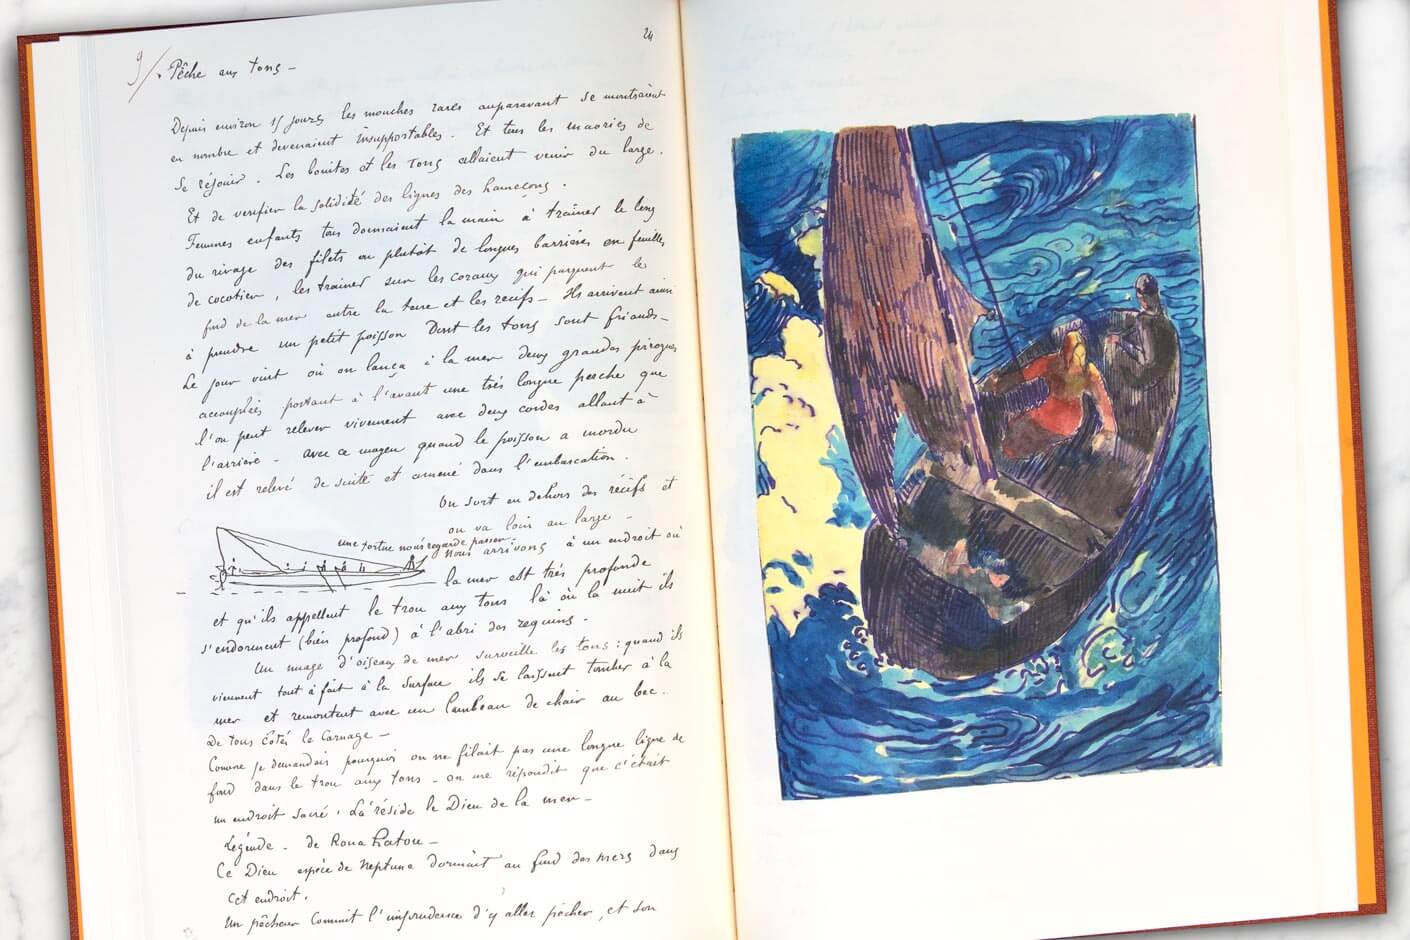 24
9/. Pêche aux tons —
Depuis environ 15 jours les mouches rares auparavant se montraient
en nombre et devenaient insupportables. Et tous les maories de
se réjouir. Les bonites et les tons allaient venir du large.
Et de verifier la solidité des lignes des hameçons.
Femmes enfants tous donnaient la main à traîner le long
du rivage des filets ou plutôt de longues barrières en feuilles
de cocotier, les traîner sur les coraux qui parquent le
fond de la mer entre la terre et les récifs — Ils arrivent ainsi
à prendre un petit poisson dont les tons sont friands —
Le jour vint où on lança à la mer deux grandes pirogues
accouplées portant à l'avant une très longue perche que
l'on peut relever vivement avec deux cordes allant à
l'arrière — avec ce moyen quand le poisson a mordu
il est relevé de suite et amené dans l'embarcation.
On sort en dehors des récifs et
on va loin au large —
une tortue nous regarde passer.
Nous arrivons à un endroit où
la mer est très profonde
et qu'ils appellent le trou aux tons là où la nuit ils
s'endorment (bien profond) à l'abri des requins.
Un nuage d'oiseaux de mer surveille les tons : quand ils
viennent tout à fait à la surface ils se laissent tomber à la
mer et remontent avec un lambeau de chair au bec.
De tous côtés le carnage —
Comme je demandais pourquoi on ne filait pas une longue ligne de
fond dans le trou aux tons — on me répondit que c'était
un endroit sacré. Là réside le Dieu de la mer —
Légende — de Roua hatou —
Ce Dieu espèce de Neptune dormait au fond des mers dans
cet endroit.
Un pêcheur commit l'imprudence d'y aller pêcher, et son